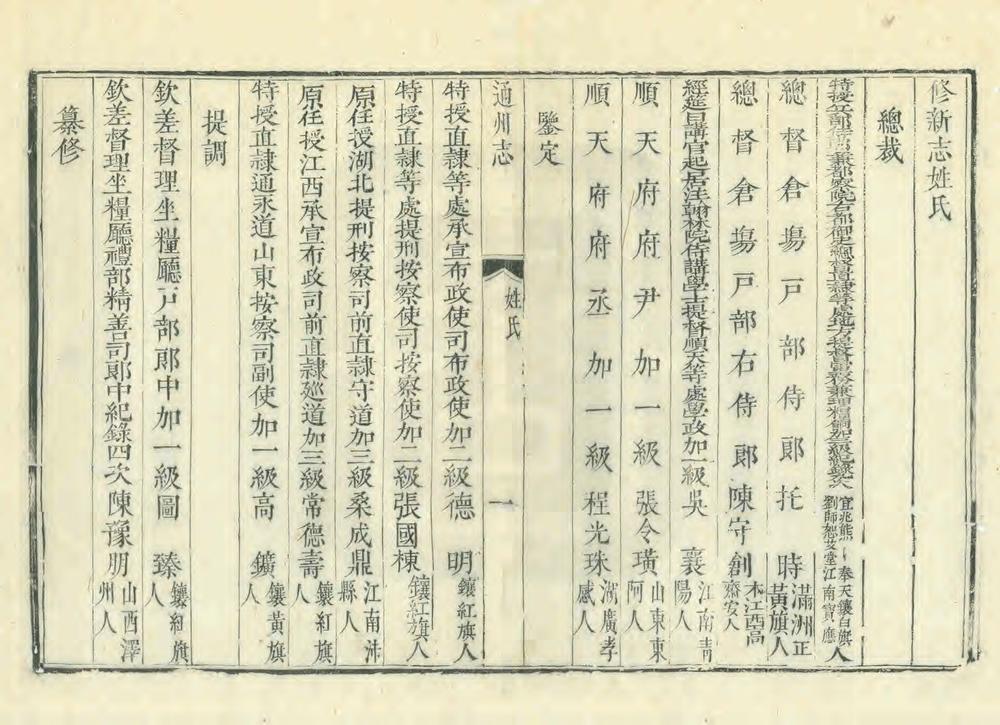 修新志姓氏
總裁
特授吏部侍郎兼都察院右都御史總督直隸等處地方提督軍務兼理糧餉加三級紀錄次 宜兆熊 奉天鑲白旗人 劉師恕艾堂江南寶應人
總督倉塲戸部侍郎托時 滿洲正黃旗人
總督倉塲戸部右侍郎陳守創 江西高齋安人
經筵日講官起居注翰林院侍講學士提督順天等處學政加一級吳襄 江南靑陽人
順天府府尹加一級張令璜 山東東阿人
順天府府丞加一級程光珠 湖廣孝感人
鑒定
通州志 姓氏 一
特授直隸等處承宣布政使司布政使加二級德明 鑲紅旗人
特授直隸等處提刑按察使司按察使加二級張國棟 鑲紅旗人
原任授湖北提刑按察司前直隸守道加三級桑成鼎 江南沛縣人
原任授江西承宣布政司前直隸廵道加三級常德壽 鑲紅旗人
特授直隸通永道山東按察司副使加一級高鑛 鑲黃旗人
提調
欽差督理坐糧廳戸部郎中加一級圖臻 鑲紅旗人
欽差督理坐糧廳禮部精善司郎中紀錄四次陳豫朋 山西澤州人
纂修